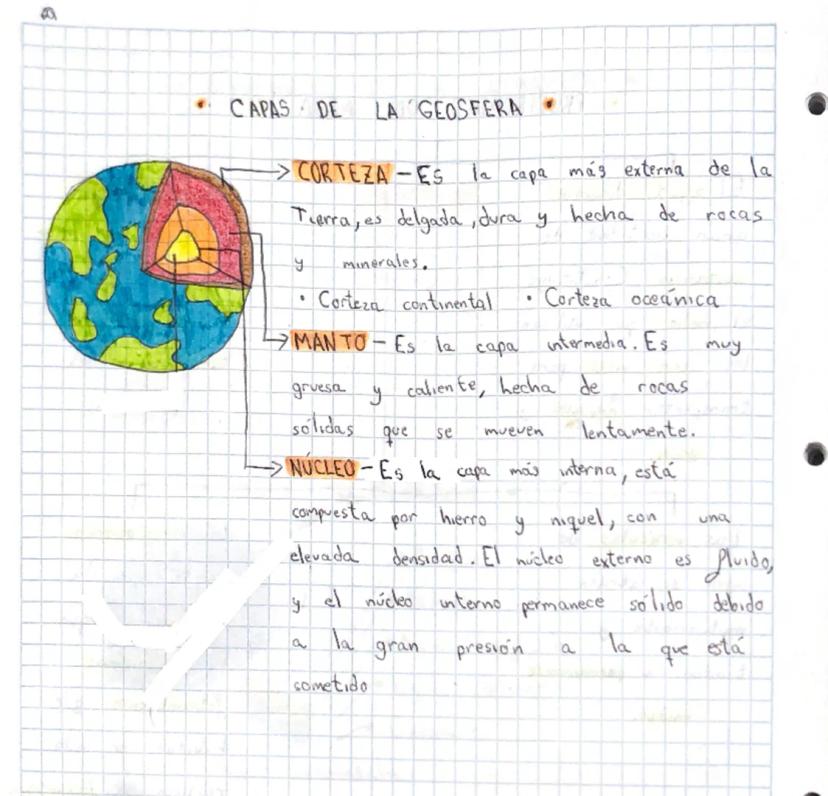 CAPAS DE LA GEOSFERA
CORTEZA - Es la capa más externa de la
Tierra, es delgada, dura y hecha de rocas
y minerales.
• Corteza continental • Corteza oceánica
MANTO - Es la capa intermedia. Es muy
gruesa y caliente, hecha de rocas
sólidas que se mueven lentamente.
NÚCLEO - Es la capa más interna, está
compuesta por hierro y niquel, con una
elevada densidad. El núcleo externo es fluido,
y el núcleo interno permanece sólido debido
a la gran presión a la que está
sometido